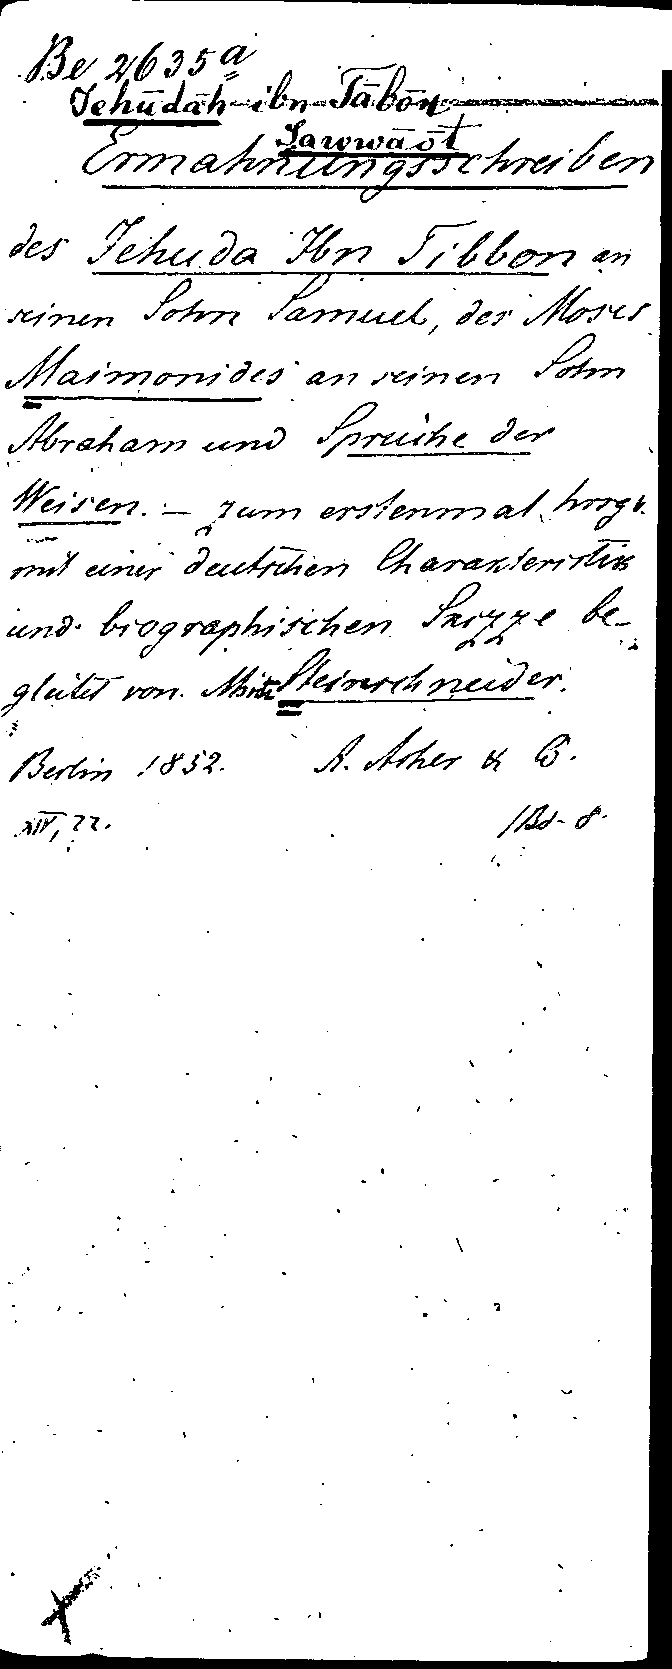 Be 2635a
Jehūdāh-ibn-Tābōn
Ṣawwāōt
Ermahnungsschreiben
des Jehuda Ibn Tibbon an
seinen Sohn Samuel, des Moses
Maimonides an seinen Sohn
Abraham und Sprüche der
Weisen. – zum erstenmal hrsgg.
mit einer deutschen Charakteristik
und biographischen Skizze be-
gleitet von Steinschneider.
Berlin 1852. A. Asher & Co.
XIV, 22. 1 Bd. 8.